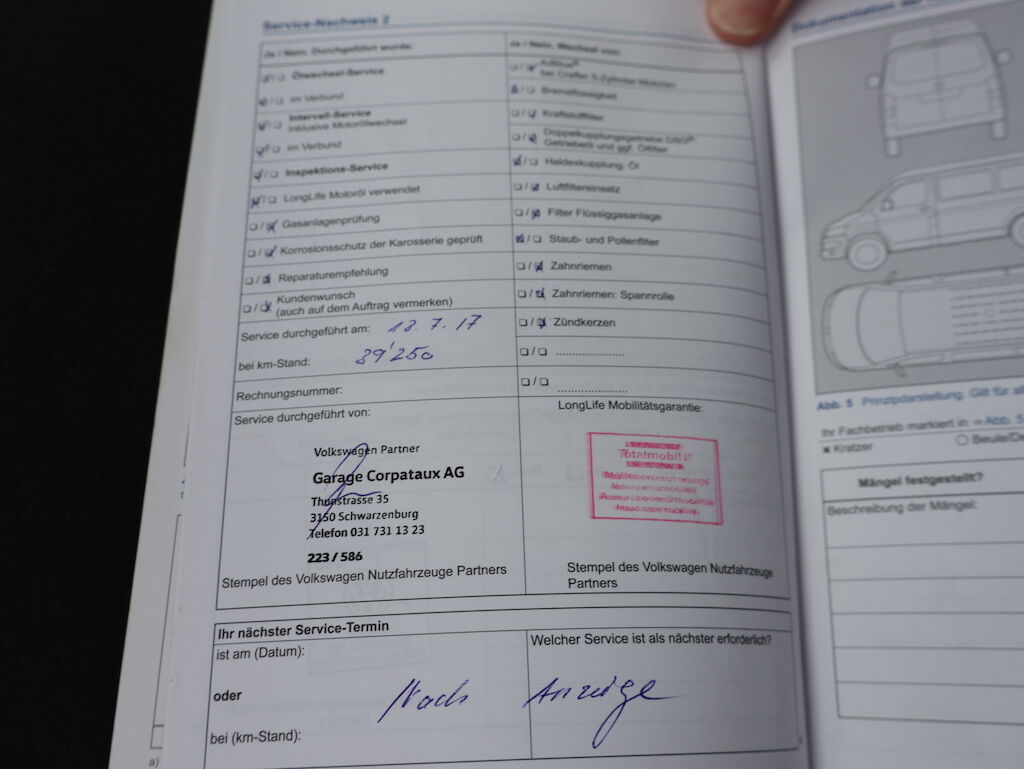 Service-Nachweis 2
Ja / Nein, Durchgeführt wurde:
Ölwechsel-Service
im Verbund
Intervall-Service
inklusive Motorölwechsel
im Verbund
Inspektions-Service
LongLife Motoröl verwendet
Gasanlagenprüfung
Korrosionsschutz der Karosserie geprüft
Reparaturempfehlung
Kundenwunsch
(auch auf dem Auftrag vermerken)
Service durchgeführt am: 18. 7. 17
bei km-Stand: 39'250
Rechnungsnummer:
Ja / Nein, Wechsel von:
AdBlue®
bei Crafter 5-Zylinder-Motoren
Bremsflüssigkeit
Kraftstofffilter
Doppelkupplungsgetriebe DSG®:
Getriebeöl und ggf. Ölfilter
Haldexkupplung: Öl
Luftfiltereinsatz
Filter Flüssiggasanlage
Staub- und Pollenfilter
Zahnriemen
Zahnriemen: Spannrolle
Zündkerzen
Service durchgeführt von:
Volkswagen Partner
Garage Corpataux AG
Thunstrasse 35
3150 Schwarzenburg
Telefon 031 731 13 23
223 / 586
Stempel des Volkswagen Nutzfahrzeuge Partners
LongLife Mobilitätsgarantie:
Totalmobil!
Stempel des Volkswagen Nutzfahrzeuge
Partners
Ihr nächster Service-Termin
ist am (Datum):
oder
bei (km-Stand):
Welcher Service ist als nächster erforderlich?
Nach Anzeige
a)
Dokumentation der
Abb. 5 Prinzipdarstellung. Gilt für al
Ihr Fachbetrieb markiert in ⇒ Abb. 5
× Kratzer
Beule/De
Mängel festgestellt?
Beschreibung der Mängel: